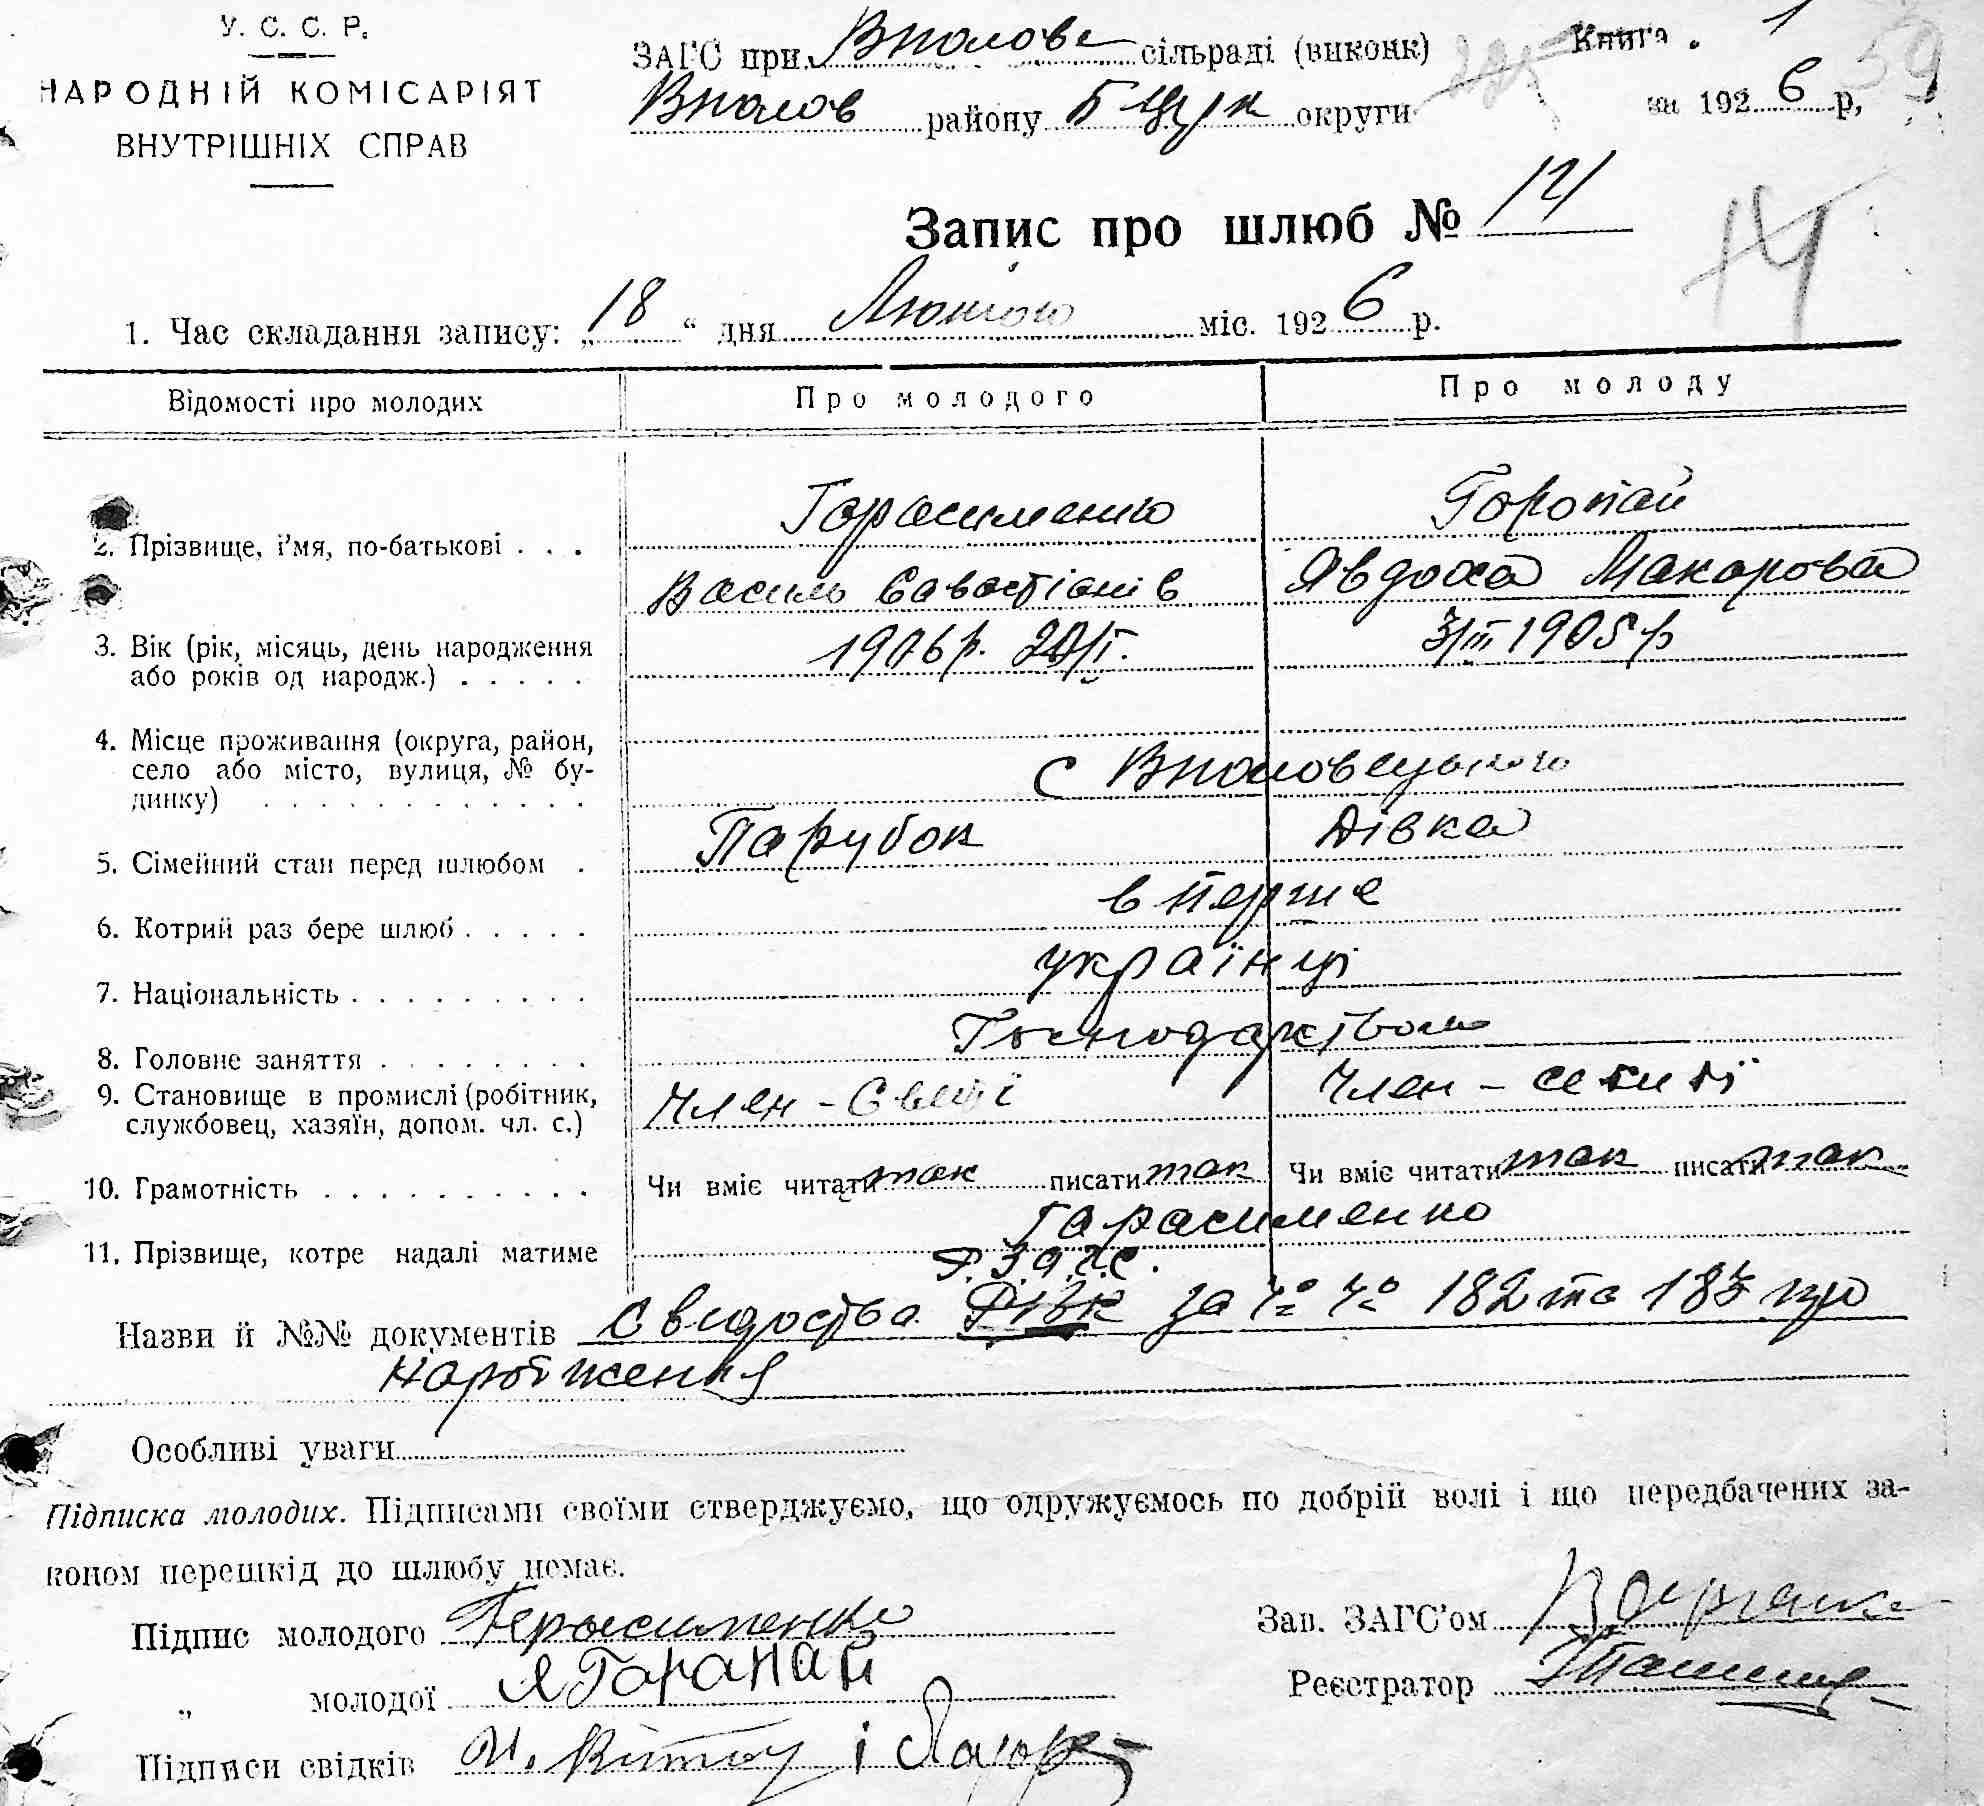 У. С. С. Р.
НАРОДНІЙ КОМІСАРІЯТ
ВНУТРІШНІХ СПРАВ
ЗАГС при Вполове сільраді (виконк)
Вполов району Б Цірк округи
Книга 1
за 1926 р,
59
Запис про шлюб № 14
14
1. Час складання запису: „18“ дня Лютого міс. 1926 р.
Відомості про молодих
Про молодого
Про молоду
2. Прізвище, і'мя, по-батькові . . .
Гарасименко
Горопай
Василь Савостіанів
Явдоха Макарова
3. Вік (рік, місяць, день народження
або років од народж.) . . . . .
1906 р. 20/I.
3/III 1905 р
4. Місце проживання (округа, район,
село або місто, вулиця, № бу-
динку) . . . . . . . . . . . .
с Вполовецького
5. Сімейний стан перед шлюбом .
Парубок
Дівка
6. Котрий раз бере шлюб . . . . .
в перше
7. Національність . . . . . . . . .
українці
8. Головне заняття . . . . . . . .
Господарством
9. Становище в промислі (робітник,
службовец, хазяїн, допом. чл. с.)
Член - Семії
Член - семиї
10. Грамотність . . . . . . . . . .
Чи вміє читати так писати так
Чи вміє читати так писати так
11. Прізвище, котре надалі матиме
Гарасименко
Назви й №№ документів Сведоства за № № 182 та 183 про
нарожження
Особливі уваги
Підписка молодих. Підписами своїми стверджуємо, що одружуємось по добрій волі і що передбачених за-
коном перешкід до шлюбу немає.
Підпис молодого Герасименко
„ молодої Я Горапай
Підписи свідків
Зав. ЗАГС'ом
Реєстратор